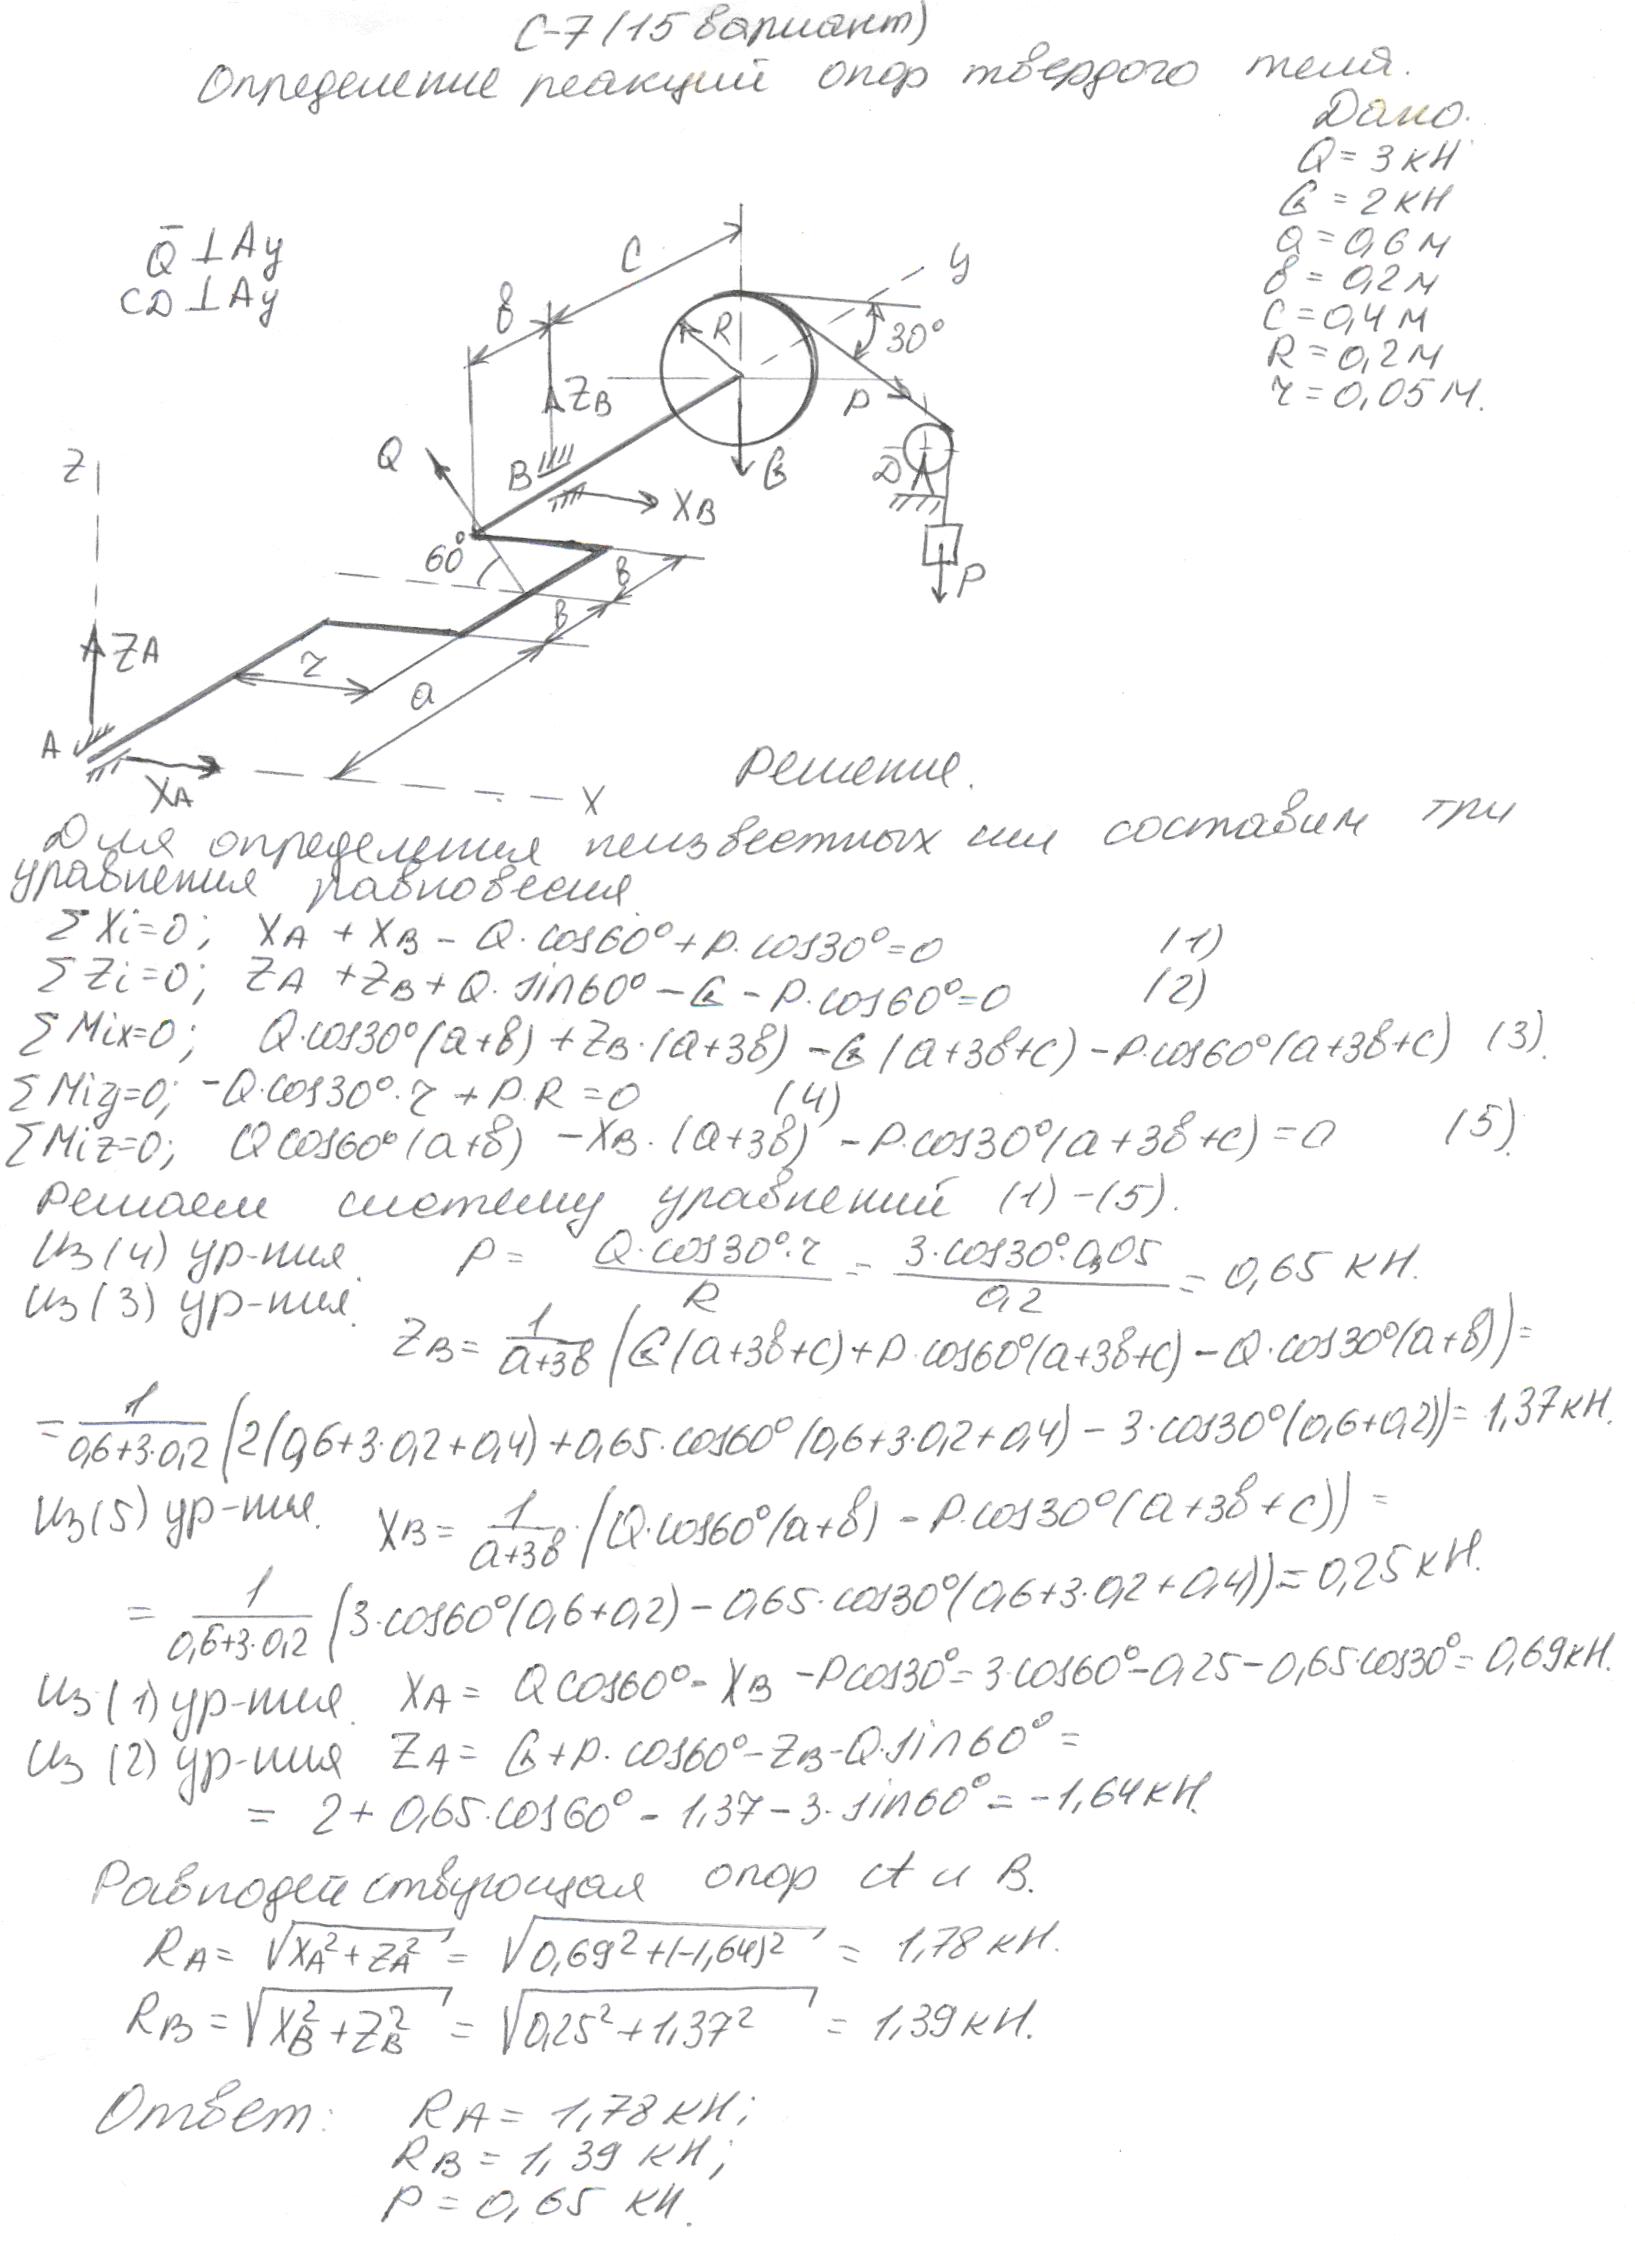 С-7 (15 вариант)
Определение реакций опор твердого тела.
Дано.
Q = 3 кН
G = 2 кН
a = 0,6 м
в = 0,2 м
c = 0,4 м
R = 0,2 м
r = 0,05 м.
Q̄ ⊥ Ay
CD ⊥ Ay
C
в
R
y
30°
ZB
P
Q
B
XB
G
D
Z
60°
в
в
P
ZA
r
a
A
XA
X
Решение.
Для определения неизвестных сил составим три
уравнения равновесия.
ΣXi=0; XA + XB - Q·cos60° + P·cos30° = 0 (1)
ΣZi=0; ZA + ZB + Q·sin60° - G - P·cos60° = 0 (2)
ΣMix=0; Q·cos30°(a+в) + ZB·(a+3в) - G(a+3в+c) - P·cos60°(a+3в+c) (3).
ΣMiy=0; -Q·cos30°·r + P·R = 0 (4)
ΣMiz=0; Qcos60°(a+в) - XB·(a+3в) - P·cos30°(a+3в+c) = 0 (5).
Решаем систему уравнений (1)-(5).
Из (4) ур-ния. P = Q·cos30°·r / R = 3·cos30°·0,05 / 0,2 = 0,65 кН.
Из (3) ур-ния. ZB = 1/(a+3в) (G(a+3в+c) + P·cos60°(a+3в+c) - Q·cos30°(a+в)) =
= 1/(0,6+3·0,2) (2(0,6+3·0,2+0,4) + 0,65·cos60°(0,6+3·0,2+0,4) - 3·cos30°(0,6+0,2)) = 1,37 кН.
Из (5) ур-ния. XB = 1/(a+3в)·(Q·cos60°(a+в) - P·cos30°(a+3в+c)) =
= 1/(0,6+3·0,2) (3·cos60°(0,6+0,2) - 0,65·cos30°(0,6+3·0,2+0,4)) = 0,25 кН.
Из (1) ур-ния. XA = Qcos60° - XB - Pcos30° = 3·cos60° - 0,25 - 0,65·cos30° = 0,69 кН.
Из (2) ур-ния ZA = G + P·cos60° - ZB - Q·sin60° =
= 2 + 0,65·cos60° - 1,37 - 3·sin60° = -1,64 кН.
Равнодействующая опор A и B.
RA = √(XA² + ZA²) = √(0,69² + (-1,64)²) = 1,78 кН.
RB = √(XB² + ZB²) = √(0,25² + 1,37²) = 1,39 кН.
Ответ: RA = 1,78 кН;
RB = 1,39 кН;
P = 0,65 кН.